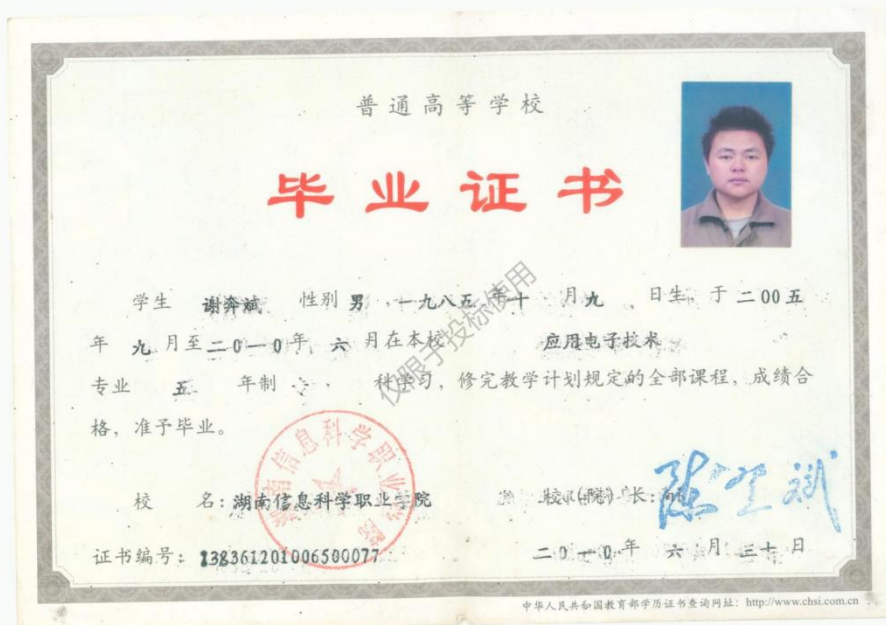 普通高等学校
毕业证书
学生 谢奔斌 性别 男 ,一九八五 年 十 月 九 日生, 于 二00五
年 九 月至 二0一0 年 六 月在本校 应用电子技术
专业 五 年制 科学习, 修完教学计划规定的全部课程, 成绩合
格, 准予毕业。
仅限于投标使用
湖南信息科学职业学院
校 名: 湖南信息科学职业学院
校(院)长:
证书编号: 138361201006500077
二0一0 年 六 月 三十 日
中华人民共和国教育部学历证书查询网址: http://www.chsi.com.cn